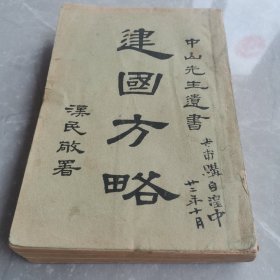 中山先生遺書
建國方略
漢民敬署
廿二年十月